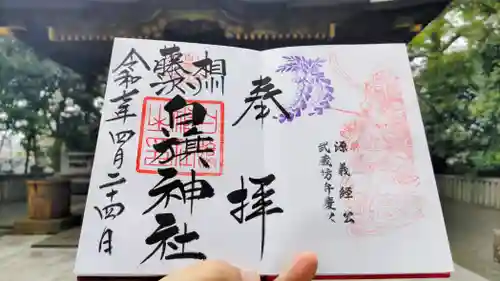 源義経公
武蔵坊弁慶
奉拝
相州
藤沢
白旗神社
令和 年四月二十四日